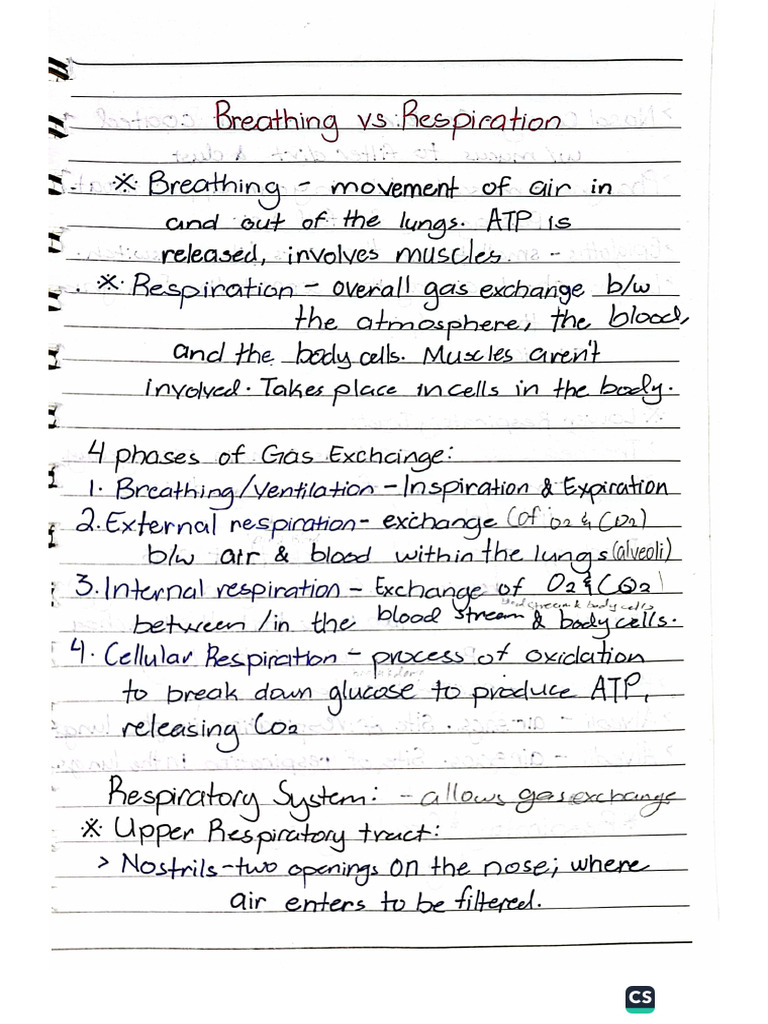 Breathing vs Respiration
※ Breathing - movement of air in
and out of the lungs. ATP is
released, involves muscles. -
※ Respiration - overall gas exchange b/w
the atmosphere, the blood,
and the body cells. Muscles aren't
involved. Takes place in cells in the body.
4 phases of Gas Exchange:
1. Breathing/Ventilation - Inspiration & Expiration
2. External respiration - exchange (of O2 & CO2)
b/w air & blood within the lungs (alveoli)
3. Internal respiration - Exchange of O2 & CO2
blood stream & body cells
between/in the blood stream & body cells.
4. Cellular Respiration - process of oxidation
to break down glucose to produce ATP,
releasing CO2
Respiratory System: - allows gas exchange
※ Upper Respiratory tract:
> Nostrils - two openings on the nose; where
air enters to be filtered.
CS